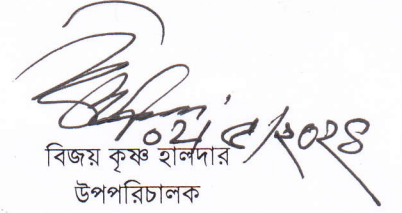 ০২/৫/২০২৪
বিজয় কৃষ্ণ হালদার
উপপরিচালক